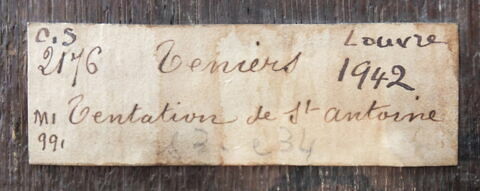 C.S Louvre
2176 Teniers 1942
MI Tentation de St antoine
991